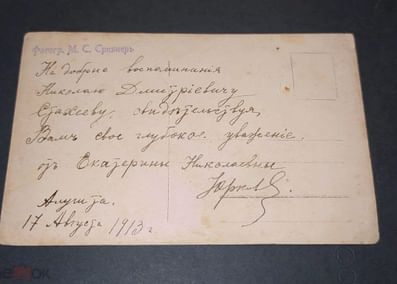 Фотогр. М. С.
На добрые воспоминанія
Николаю Дмитріевичу
Стахееву, свидѣтельствуя
Вамъ свое глубокое уваженіе.
отъ Екатерины Николаевны
Алушта.
17 Августа 1913 г.